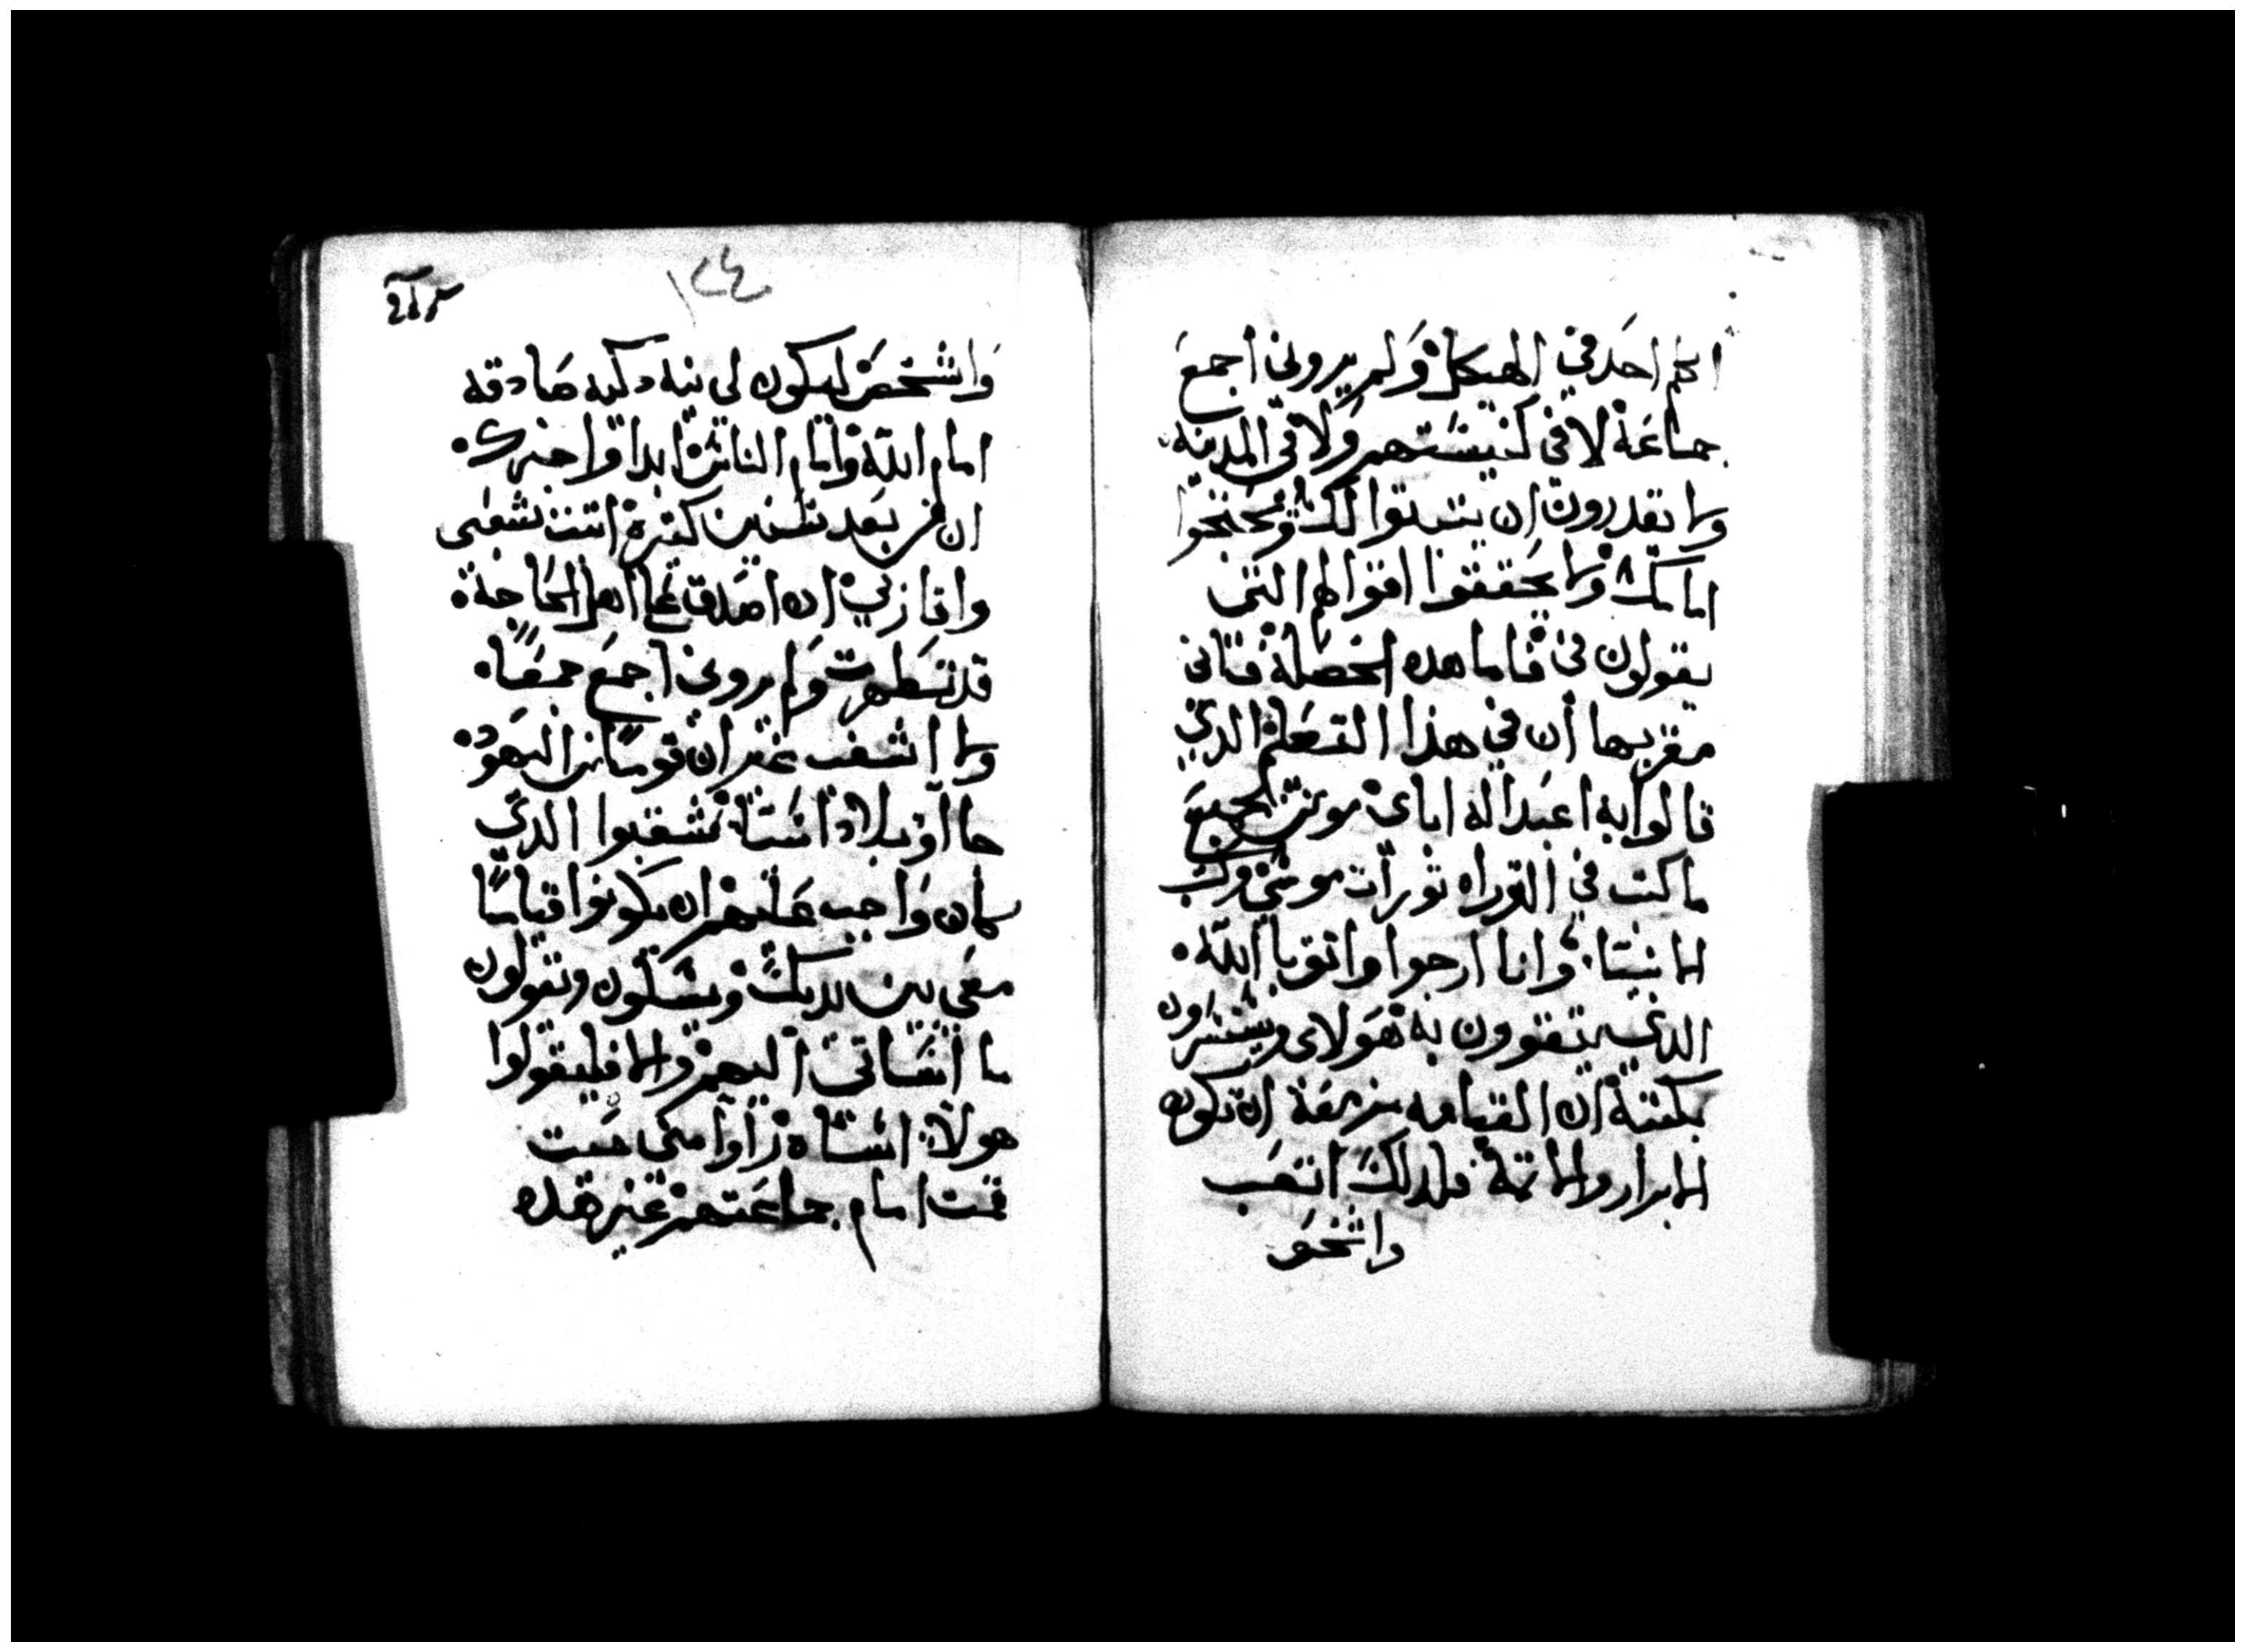 اكلم احد في الهيكل ولم يروني اجمع
جماعة لا في كنيستهم ولا في المدينه
ولا يقدرون ان يثبتوا لك ويحتجوا
امامك ولا يحققوا اقوالهم التي
يقولون في فاما هده الخصلة فاني
مقر بها أن في هذا التعلم الدي
قالوا به اعبد اله اباى مومن بجميع
ما كتب في التوراه تورات موسى وكتب
الانبيا وانا ارجوا واتق بالله
الدي يتقوون به هولاى وينتظرون
ان القيامه مزمعة ان تكون
الابرار والاتمة فلدلك اتعب
واشخص
١٢٤
واشخص ليكون لى نيه دكيه صادقه
امام الله وامام الناس ابدا واخبرك
ان من بعد سنين كثيرة اتيت شعبى
وانا ان اصدق على اهل الحاجة
قد تطهرت ولم يروني اجمع جمعًا
ولا اشغب غير ان قومًا من اليهود
جاآو من بلاد اسيا شغبوا الدي
كان واجب عليهم ان يكونوا قيامًا
معى بين يديك ويسلون ويقولون
ما اساتى اليهم والا فليقولوا
هولاء اسأه راوا منى حيت
قمت امام جماعتهم غير هده